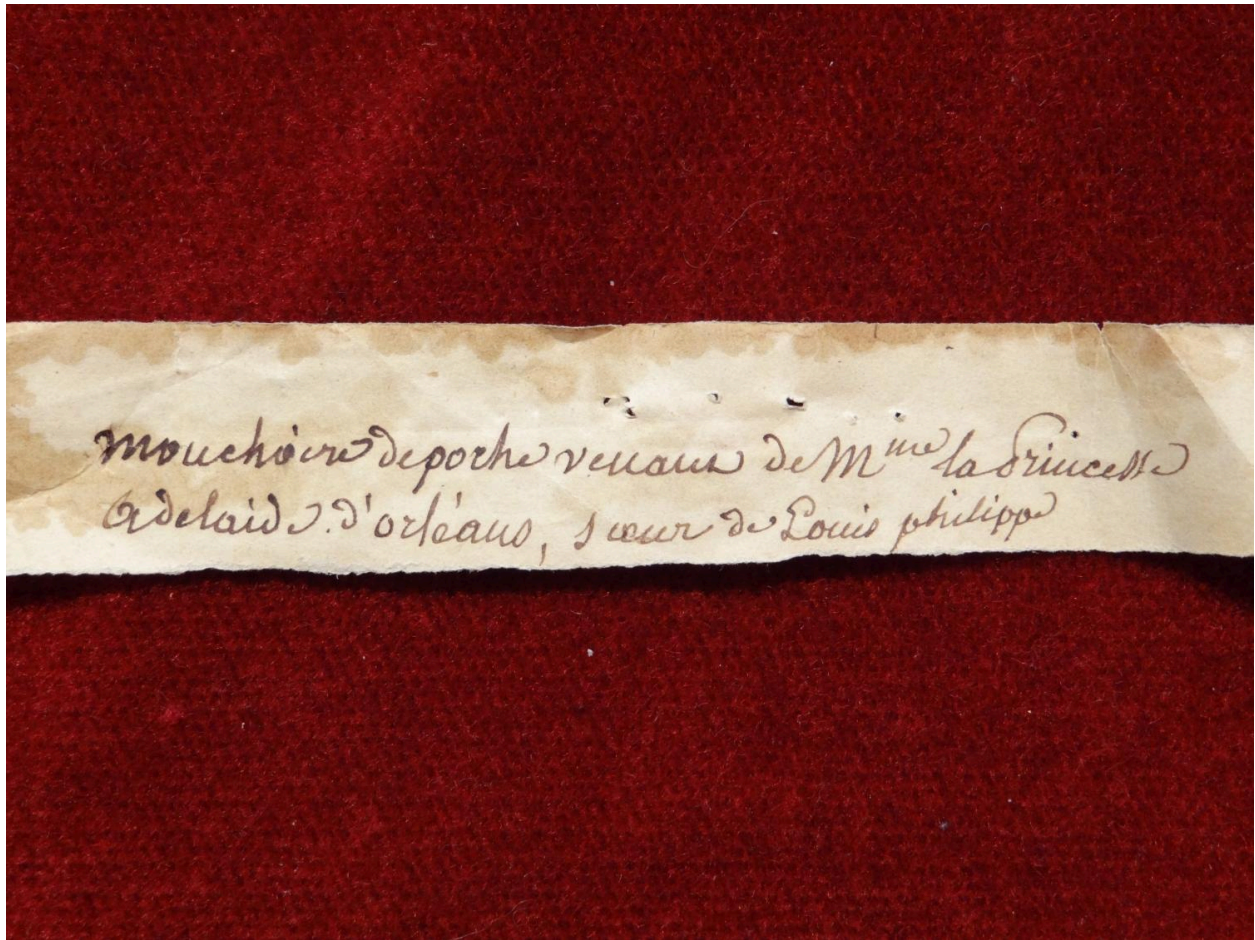 mouchoire de poche venant de Mme la Princesse
adelaide. d'orléans, sœur de Louis philippe